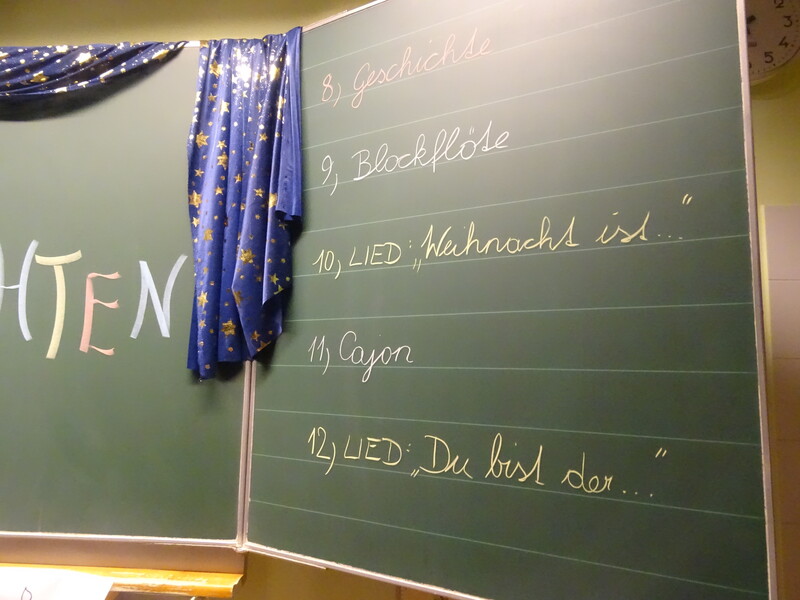 HTEN
8, Geschichte
9, Blockflöte
10, LIED: „Weihnacht ist..."
11, Cajon
12, LIED: „Du bist der..."